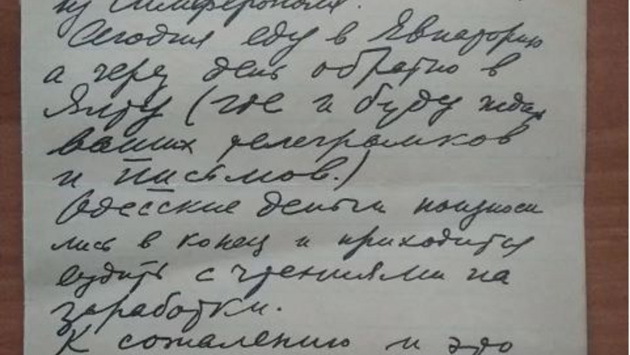 из Симферополя.
Сегодня еду в Евпаторию
а через день обратно в
Ялту (где и буду ждать
ваших телеграмков
и письмов.)
Одесские деньги поизноси
лись в конец и приходится
ездить с чтениями на
заработки.
К сожалению и это